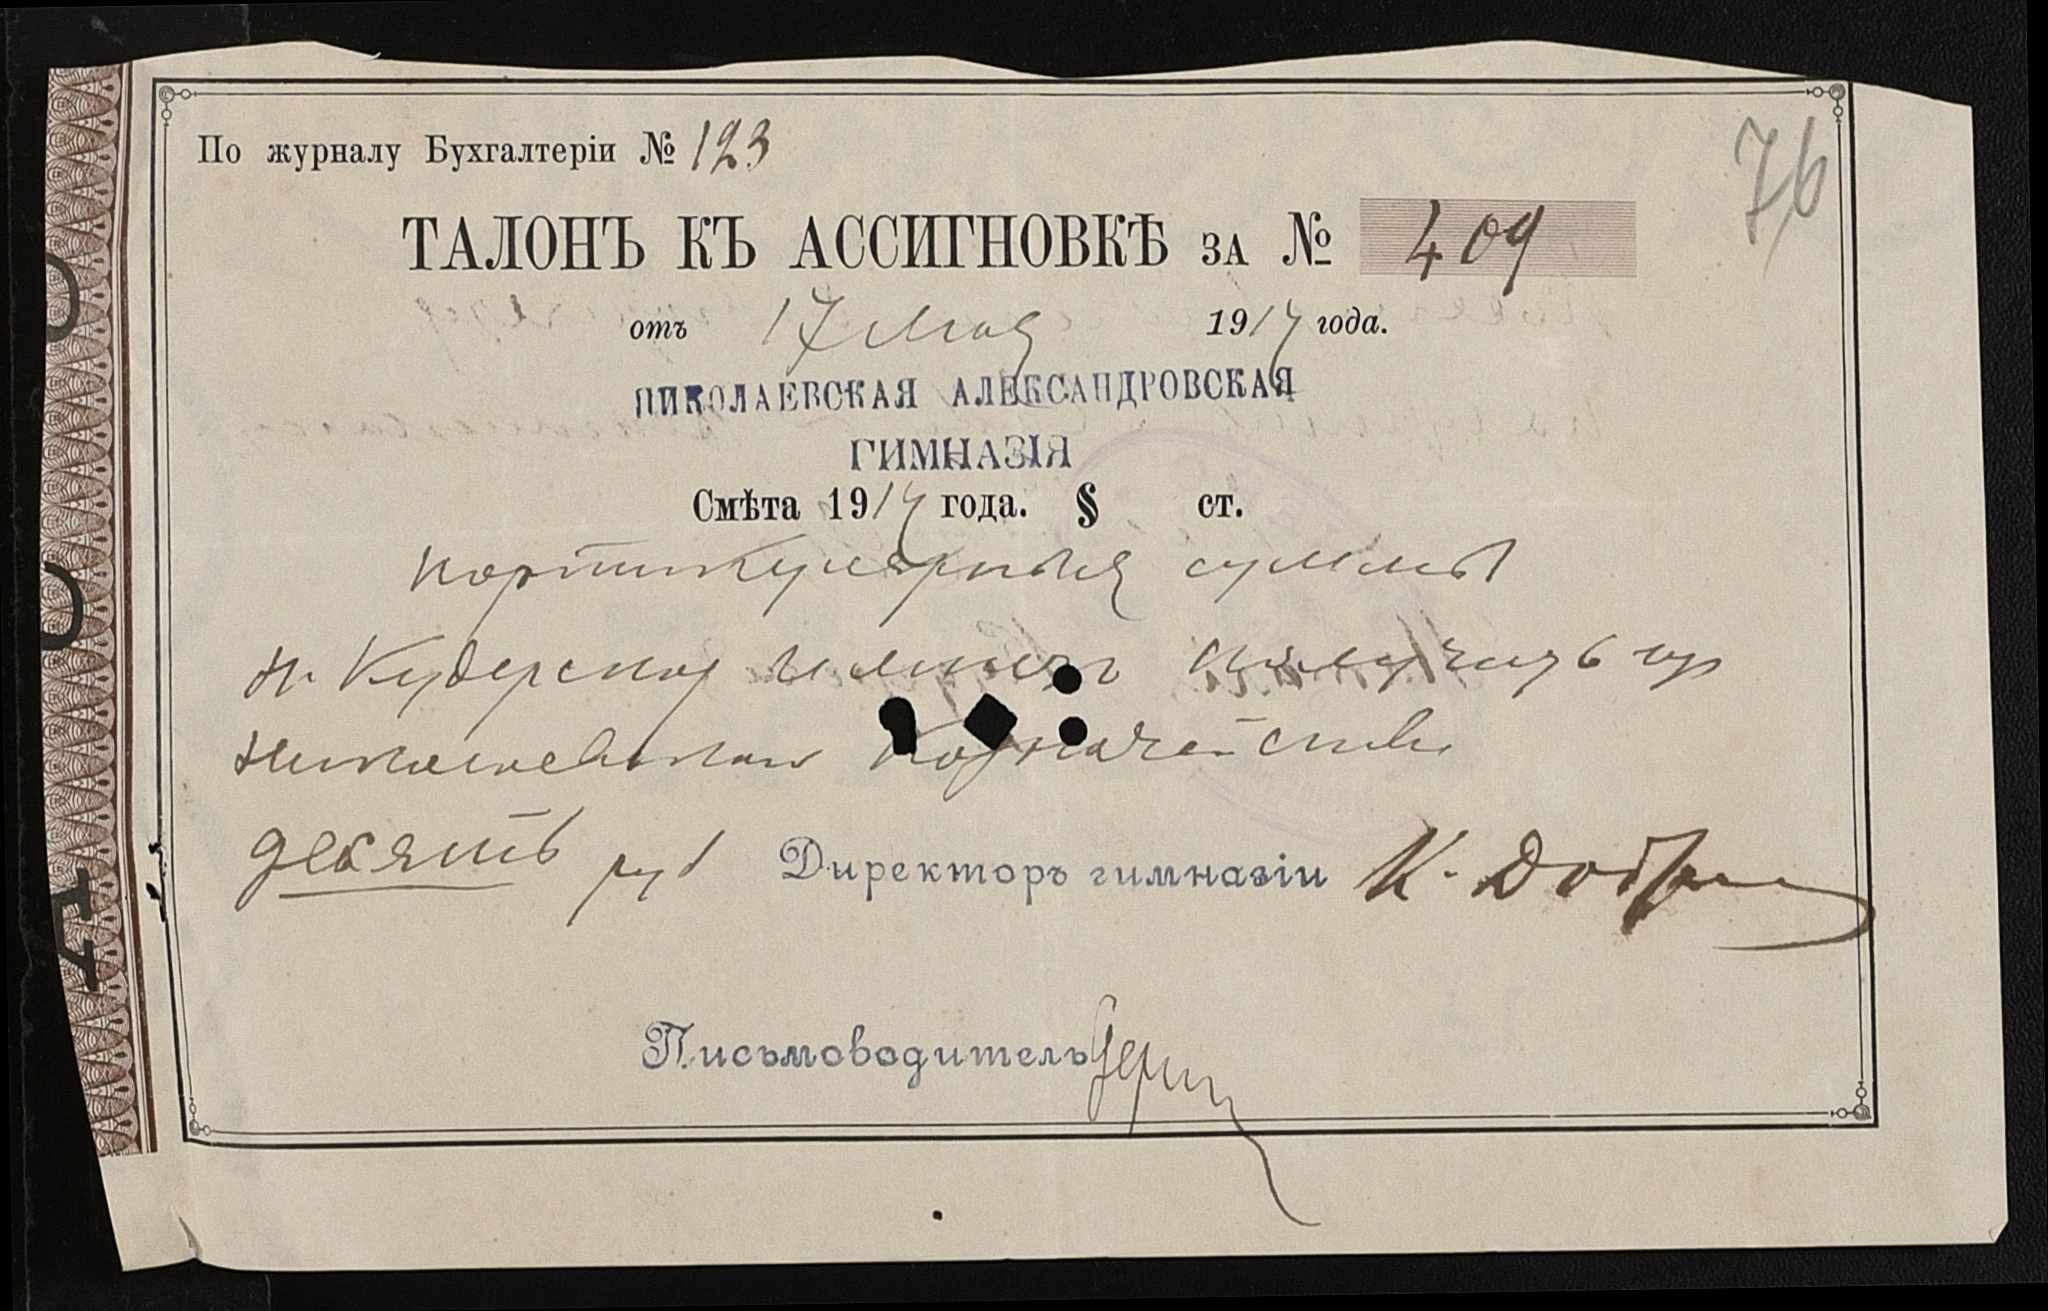 76
По журналу Бухгалтеріи № 123
ТАЛОНЪ КЪ АССИГНОВКѢ ЗА № 409
отъ 17 Мая 1914 года.
НИКОЛАЕВСКАЯ АЛЕКСАНДРОВСКАЯ
ГИМНАЗІЯ
Смѣта 1914 года. § ст.
партикулярныя суммы
получить
Николаевском Казначействе
десять руб Директоръ гимназіи К. Добр
Письмоводитель